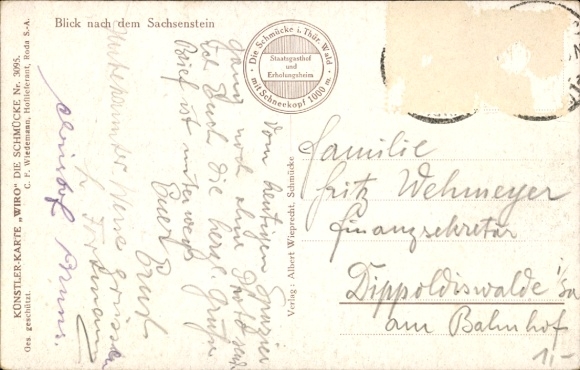 Blick nach dem Sachsenstein
Die Schmücke i. Thür. Wald
Staatsgasthof
und
Erholungsheim
mit Schneekopf 1000 m.
KÜNSTLER-KARTE „WIRO" DIE SCHMÜCKE Nr. 3095.
C. F. Wiedemann, Hoflieferant, Roda S.-A.
Ges. geschützt.
Verlag: Albert Wieprecht, Schmücke
Vom heutigen
ganz noch ohne
ich Euch die herzl. Grüße
Brief ist unterwegs
Euer
Ernst
Unbekannter Weise
Familie
Fritz Wehmeyer
Finanzsekretär
Dippoldiswalde i/Sa
am Bahnhof
1,-